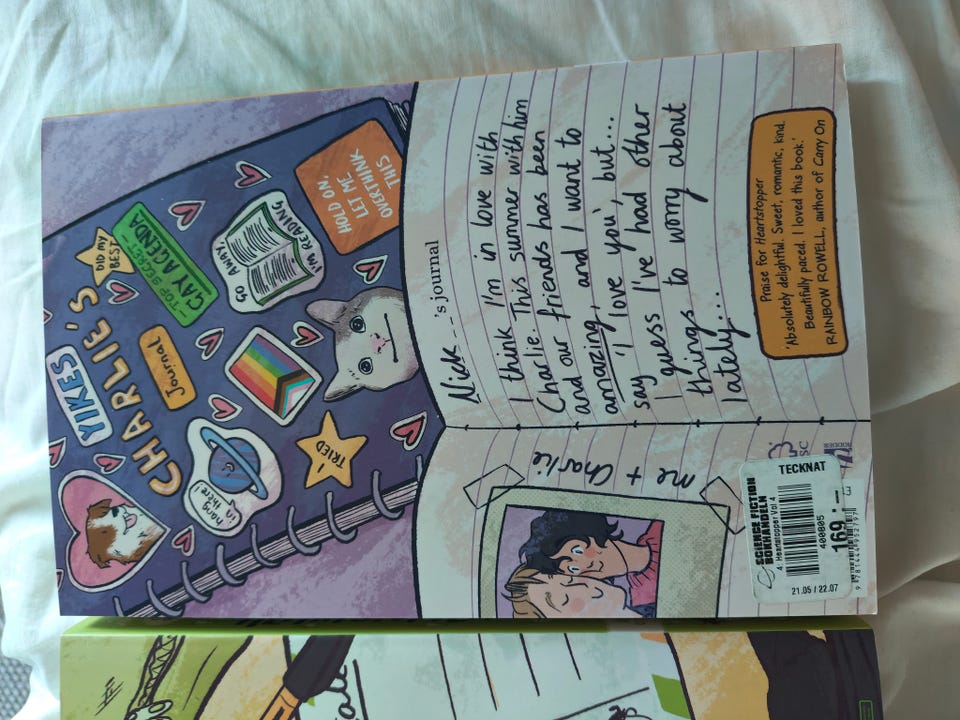 YIKES
CHARLIE'S
Journal
DID my
BEST
-TOP SECRET-
GAY AGENDA
hang
in there!
GO AWAY,
I'M READING
I
TRIED
HOLD ON,
LET ME
OVERTHINK
THIS
Nick's journal
I think I'm in love with
Charlie. This summer with him
and our friends has been
amazing, and I want to
say 'I love you', but...
I guess I've had other
things to worry about
lately...
me + Charlie
Praise for Heartstopper
'Absolutely delightful. Sweet, romantic, kind.
Beautifully paced. I loved this book.'
RAINBOW ROWELL, author of Carry On
SCIENCE FICTION
BOKHANDELN
4: Heartstopper Vol 4
TECKNAT
400805
169:-
21.05 / 22.07
9 781444 952797